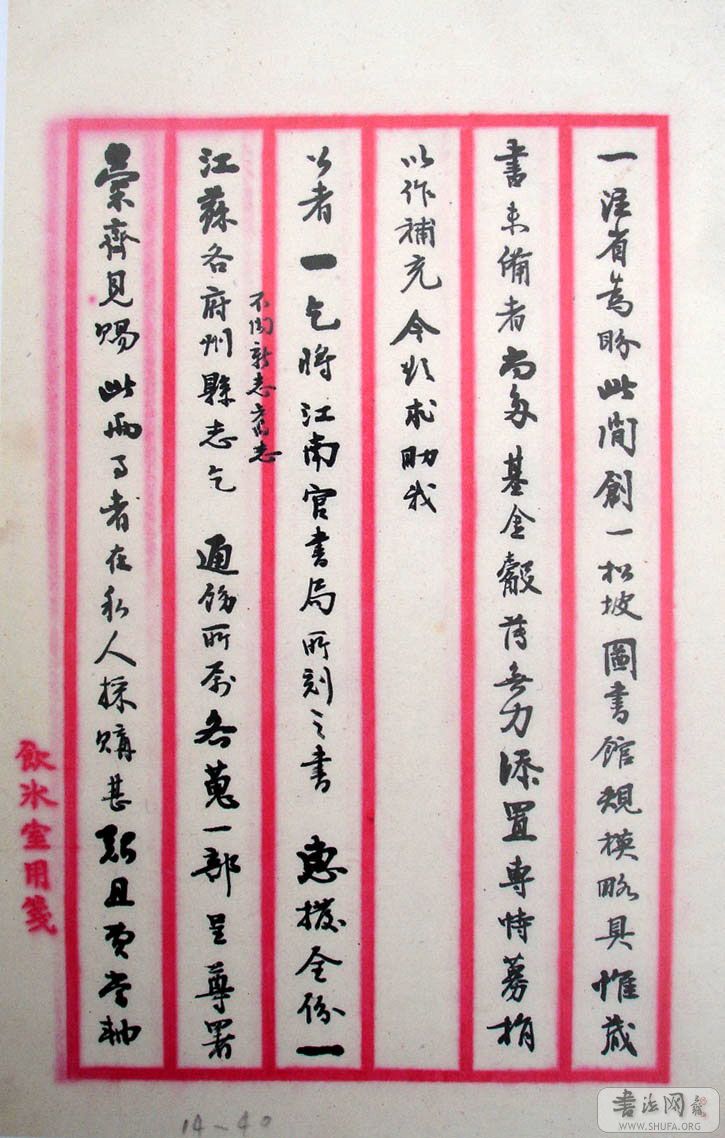 一注省為盼此間創一松坡圖書館規模略具惟藏
書未備者尚多基金觳薄無力添置專恃募捐
以作補充今欲求助我
公者一乞將江南官書局所刻之書惠撥全份一
不問新志舊志
江蘇各府州縣志乞通飭所屬各蒐一部呈尊署
彙齊見賜此兩事者在私人採購甚艱且費當軸
飲冰室用箋
14-40
书法网
WWW.SHUFA.ORG